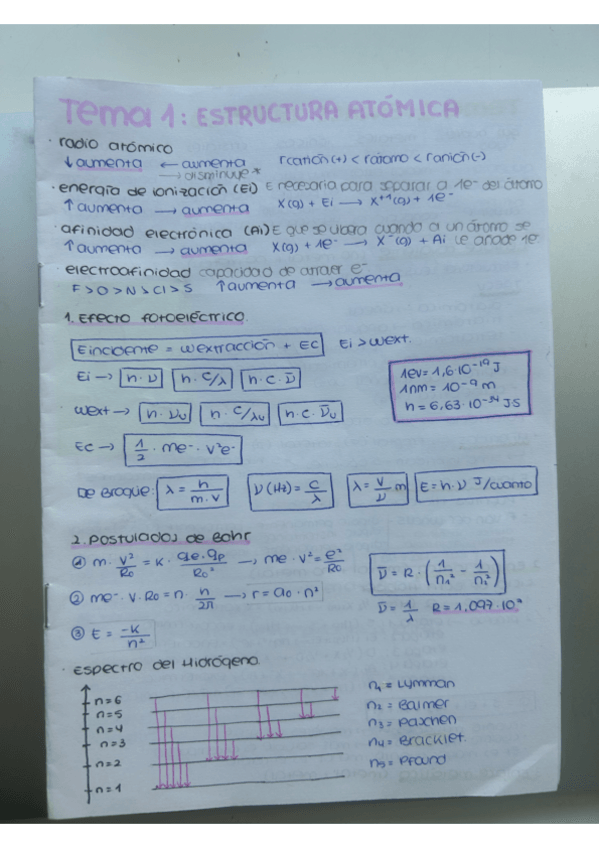 Tema 1: ESTRUCTURA ATÓMICA
· radio atómico
↓ aumenta ← aumenta rcatión(+) < rátomo < ranión(-)
→ disminuye *
· energía de ionización (Ei) E necesaria para separar a 1e⁻ del átomo
↑ aumenta → aumenta X(g) + Ei → X⁺¹(g) + 1e⁻
· afinidad electrónica (Ai) E que se libera cuando a un átomo se
↑ aumenta → aumenta X(g) + 1e⁻ → X⁻(g) + Ai le añade 1e⁻
· electroafinidad capacidad de atraer e⁻
F > O > N > Cl > S ↑ aumenta → aumenta
1. Efecto fotoeléctrico.
Eincidente = Wextracción + EC Ei > Wext.
Ei → h · ν h · c/λ h · c · ν̄
1eV = 1,6·10⁻¹⁹ J
1nm = 10⁻⁹ m
h = 6,63·10⁻³⁴ JS
Wext → h · ν₀ h · c/λ₀ h · c · ν̄₀
EC → 1/2 · me⁻ · v²e⁻
De Broglie: λ = h/m·v ν(Hz) = c/λ λ = v/ν m E = h·ν J/cuanto
2. Postulados de Bohr
① m · v²/R₀ = K · qe·qp/R₀² → me · v² = e²/R₀
② me⁻ · v · R₀ = n · h/2π → r = a₀ · n²
③ E = -K/n²
ν̄ = R · (1/n₁² - 1/n₂²)
ν̄ = 1/λ R = 1,097·10⁷
· Espectro del Hidrógeno
n=6
n=5
n=4
n=3
n=2
n=1
n₁ = Lymman
n₂ = Balmer
n₃ = Paschen
n₄ = Bracklet.
n₅ = Pfound